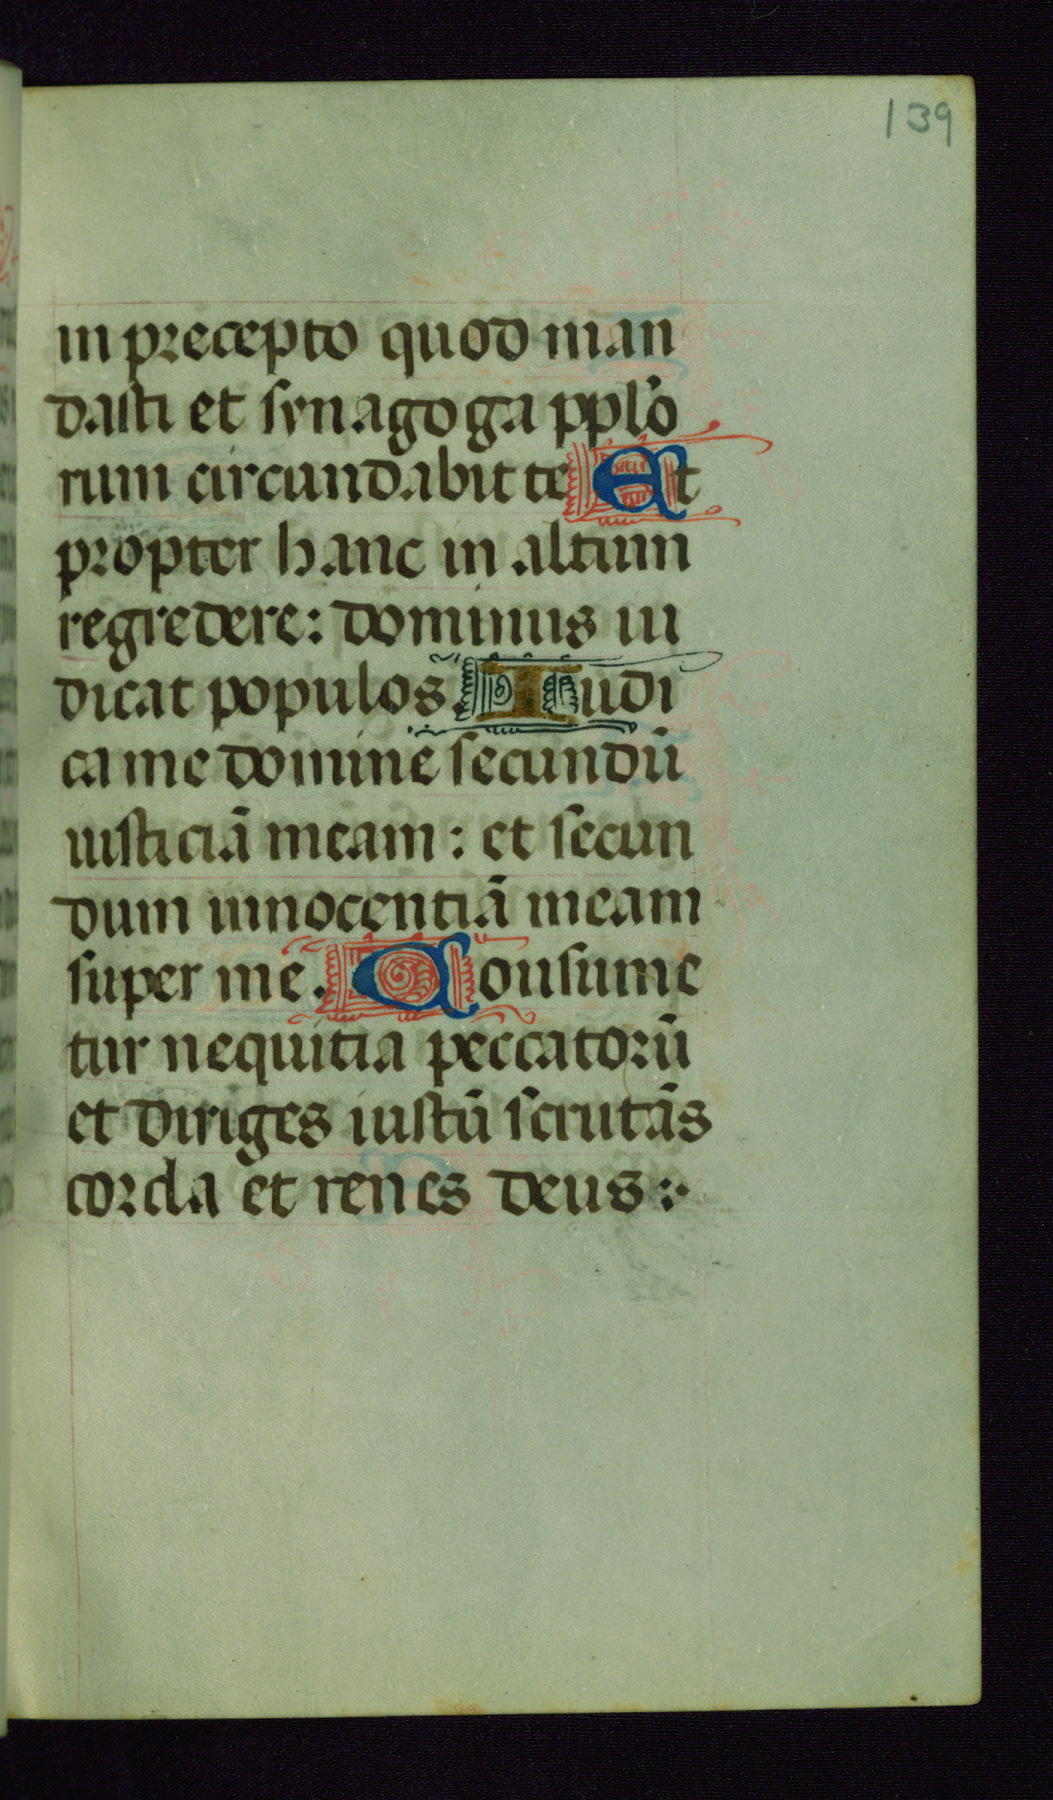 139
in precepto quod man
dasti et synagoga pplo
rum circundabit te Et
propter hanc in altum
regredere: dominus iu
dicat populos. Iudi
ca me domine secundū
iusticiā meam: et secun
dum innocentiā meam
super me. Consume
tur nequitia peccatorū
et diriges iustū scrutās
corda et renes deus:·